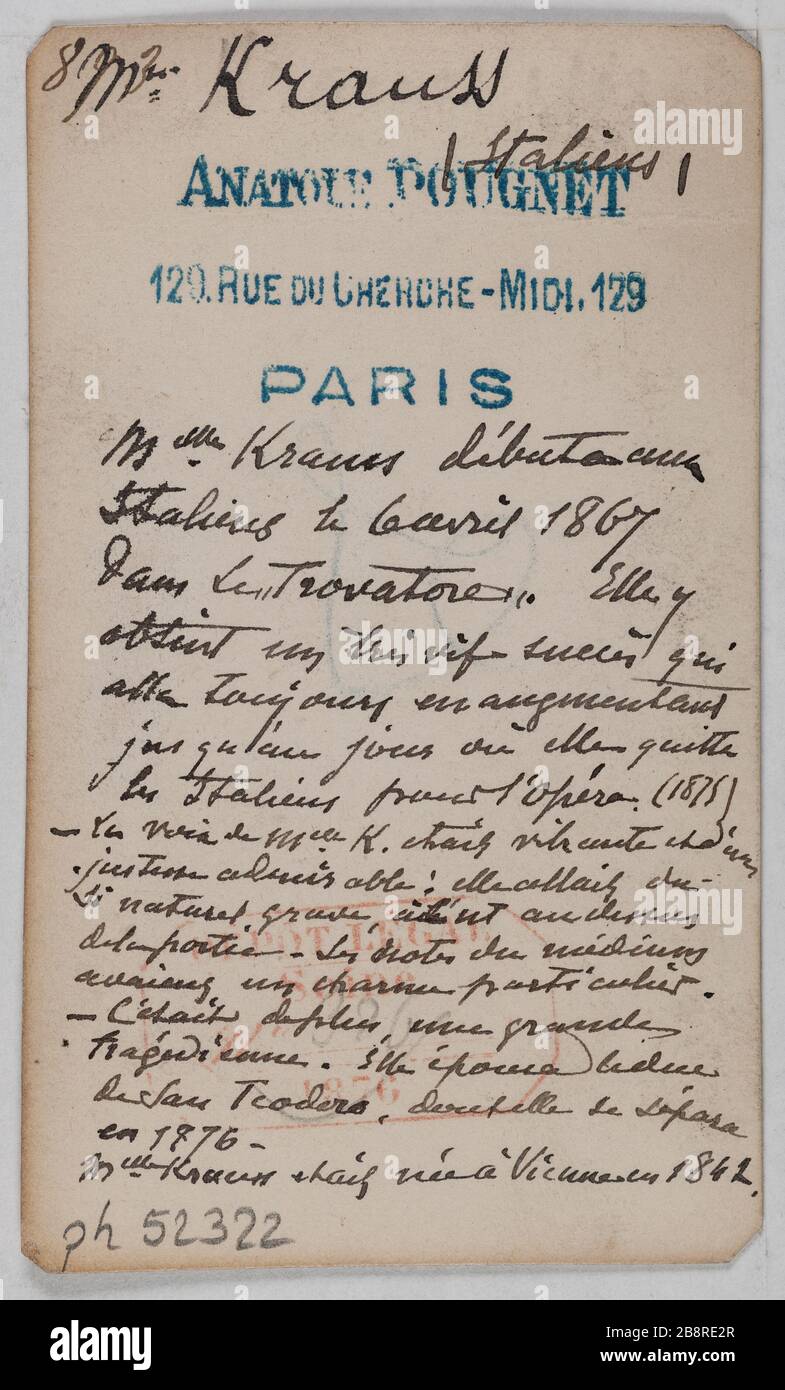 8 Mme Krauss
(Italiens)
ANATOLE POUGNET
129. RUE DU CHERCHE-MIDI. 129
PARIS
Melle Krauss débuta aux
Italiens le 6 avril 1867
dans le "Trovatore". Elle y
obtint un très vif succès qui
alla toujours en augmentant
jusqu'au jour où elle quitta
les Italiens pour l'opéra. (1875)
- La voix de Melle K. était vibrante et d'une
justesse admirable : elle allait du
si naturel grave, à l'ut au dessus
de la portée - Les notes du médium
avaient un charme particulier.
- C'était de plus, une grande
tragédienne. Elle épousa le duc
de San Teodoro, dont elle se sépara
en 1876 -
Melle Krauss était née à Vienne en 1842.
DÉPÔT LÉGAL
1876
ph 52322
alamy
Image ID: 2B8RE2R
www.alamy.com